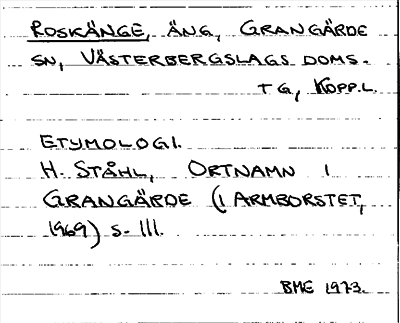 ROSKÄNGE, ÄNG, GRANGÄRDE
SN, VÄSTERBERGSLAGS DOMS.
TG, KOPP.L.
ETYMOLOGI.
H. STÅHL, ORTNAMN I
GRANGÄRDE (I ARMBORSTET,
1969) S. 111.
BME 1973.